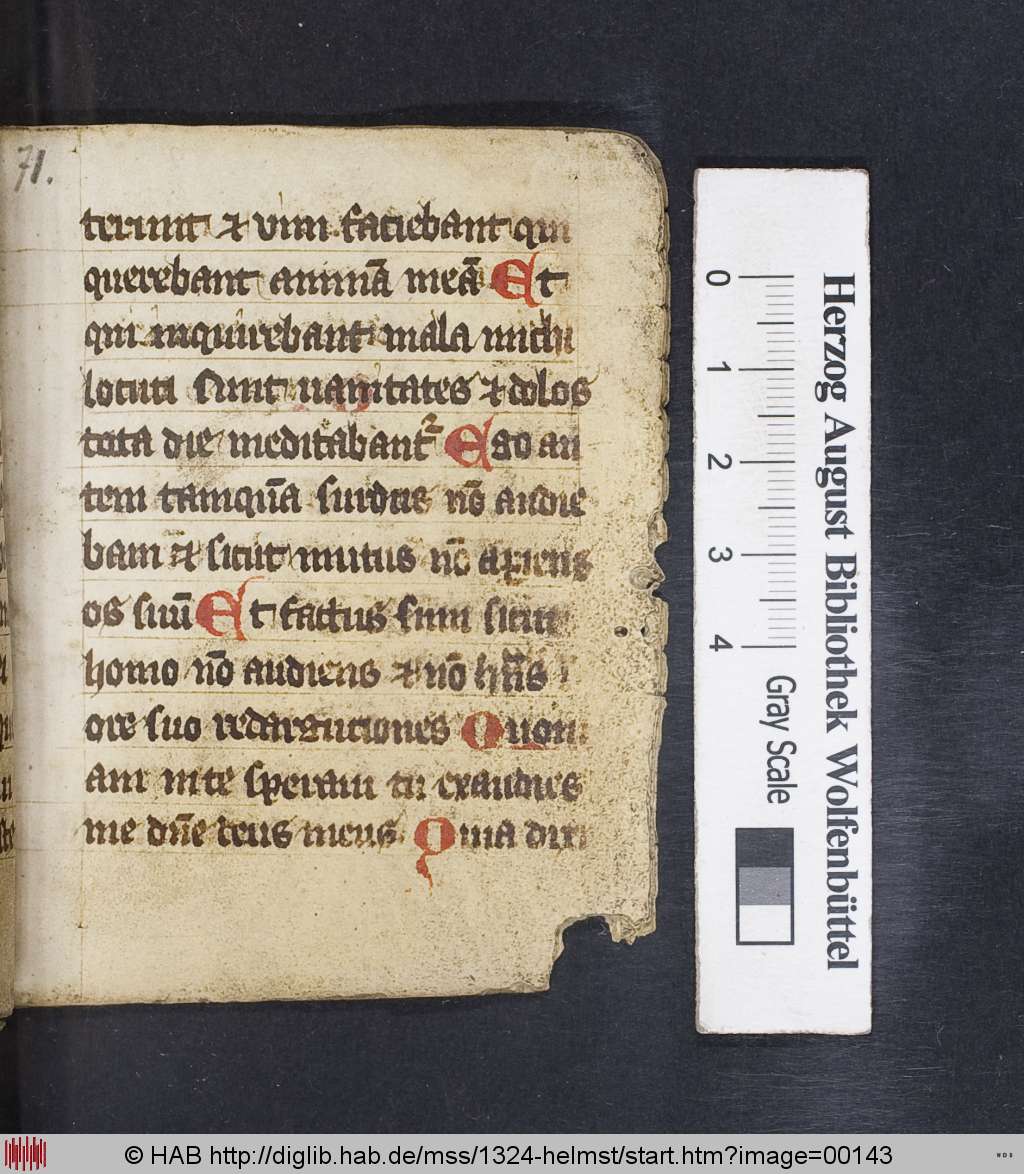 71.
terunt ⁊ vim faciebant qui
querebant animā meā Et
qui inquirebant mala michi
locuti sunt uanitates ⁊ dolos
tota die meditabantᷣ Ego au
tem tamquā surdus nō audie
bam ⁊ sicut mutus nō aperiens
os suū Et factus sum sicut
homo nō audiens ⁊ nō hn̄s ı
ore suo redargutiones Quoni
am in te speraui tu exaudies
me dn̄e deus meus Quia dixi
Herzog August Bibliothek Wolfenbüttel
0 1 2 3 4
Gray Scale
© HAB http://diglib.hab.de/mss/1324-helmst/start.htm?image=00143